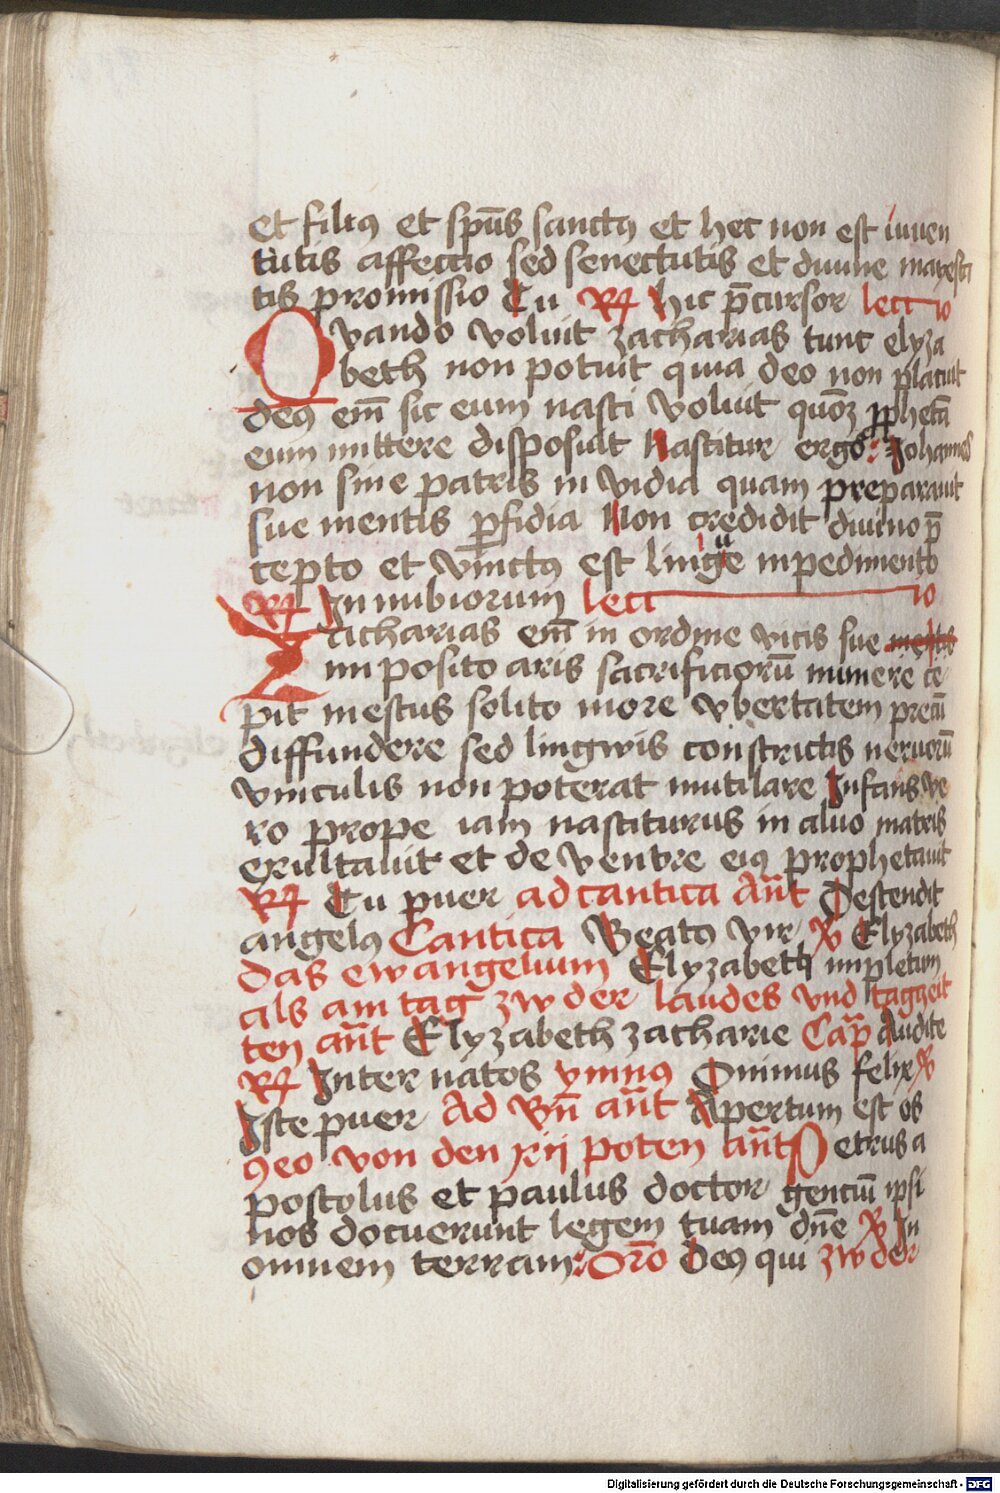 et filiꝰ et spūs sanctꝰ et hec non est iuuen
tutis affectio sed senectutis et diuine maiesta
tis promissio Tu R hic p̄cursor lectio
Quando voluit zacharias tunc elyza
beth non potuit quia deo non placuit
deꝰ em̄ sic eum nasci voluit quōꝫ ꝓphetā
eum mittere disposuit Nascitur ergo Johannes
non sine patris in vidia quam preparauit
sue mentis ꝑfidia Non credidit diuino p̄
cepto et vinctꝰ est lingue inpedimento
R In nubiorum lectio
Zacharias em̄ in ordine vicis sue mentis
im posito aris sacrificiorū munere ce
pit mestus solito more vbertatem precū
diffundere sed lingwis constrictis neruorū
vinculis non poterat mutilare Infans ve
ro prope iam nasciturus in aluo matris
exultauit et de ventre eiꝰ prophetauit
R Tu puer ad cantica An̄t Descendit
angelꝰ Cantica Beatꝰ vir V Elyzabeth
Das ewangelium Elyzabeth impletum
als am tag zw der laudes vnd taggzeit
ten an̄t Elyzabeth zacharie Cap̄ Audite
R Inter natos ymnꝰ Onimus felix V
Iste puer Ad Bn̄ an̄t Apertum est os
ꝯeo von den xij poten an̄t Petrus a
postolus et paulus doctor genciū ipsi
nos docuerunt legem tuam dn̄e V In
omnem terram Orō Deꝰ qui zw der
Digitalisierung gefördert durch die Deutsche Forschungsgemeinschaft - DFG